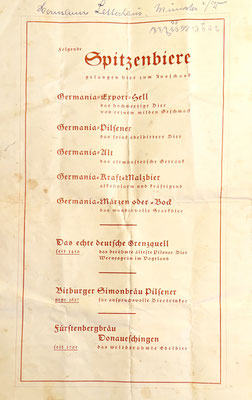 Folgende
Spitzenbiere
gelangen hier zum Ausschank
Germania-Export-Hell
das hochwertige Bier
von reinem milden Geschmack
Germania-Pilsener
das feine edelbittere Bier
Germania-Alt
das altmünstersche Getränk
Germania-Kraft-Malzbier
alkoholarm und kräftigend
Germania-Märzen oder -Bock
das wundervolle Starkbier
Das echte deutsche Grenzquell
seit
das berühmte älteste Pilsner Bier
Wernesgrün im Vogtland
Bitburger Simonbräu Pilsener
gegr. 1817
für anspruchsvolle Biertrinker
Fürstenbergbräu
Donaueschingen
seit
das weltberühmte Edelbier